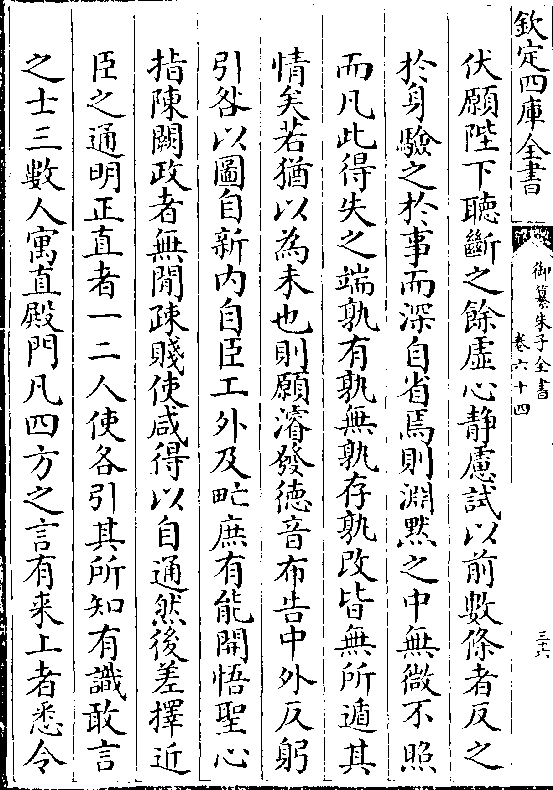 欽定四庫全書
御纂朱子全書
卷六十四
三十六
伏願陛下聽斷之餘虛心静慮試以前數條者反之
於身驗之於事而深自省焉則淵黙之中無微不照
而凡此得失之端孰有孰無孰存孰改皆無所遁其
情矣若猶以為未也則願濬發德音布告中外反躬
引咎以圖自新内自臣工外及甿庶有能開悟聖心
指陳闕政者無間疎賤使咸得以自通然後差擇近
臣之通明正直者一二人使各引其所知有識敢言
之士三數人寓直殿門凡四方之言有来上者悉令